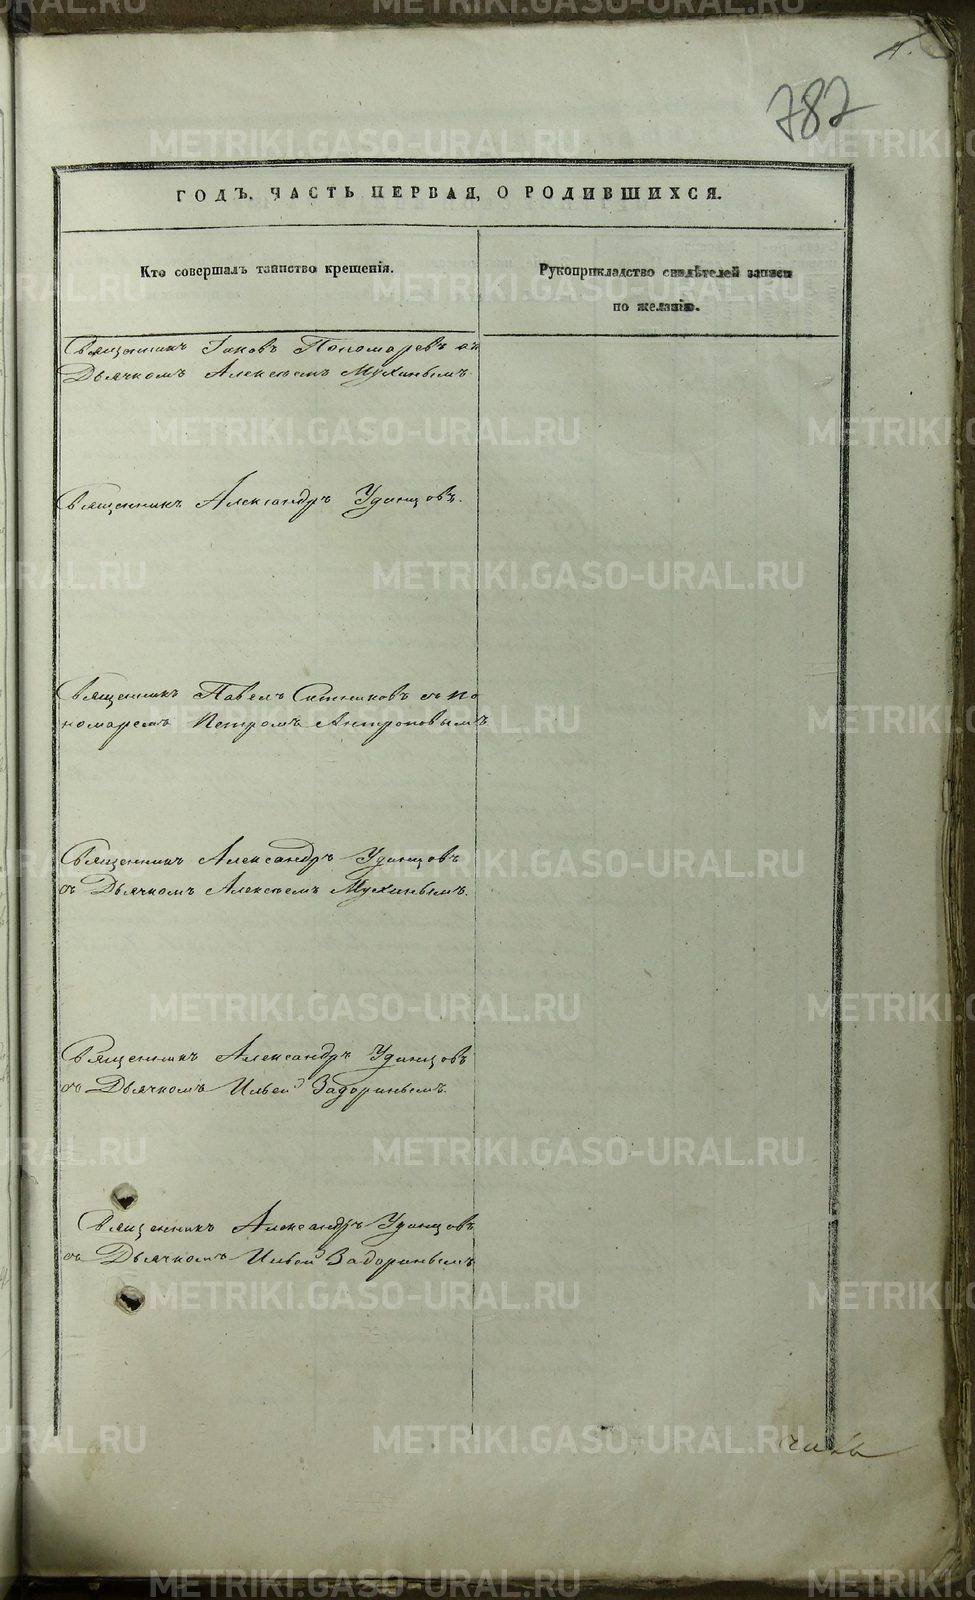 4.
787
ГОДЪ, ЧАСТЬ ПЕРВАЯ, О РОДИВШИХСЯ.
Кто совершалъ таинство крещенія.
Рукоприкладство свидѣтелей записи
по желанію.
Священникъ Іаковъ Пономаревъ съ
Дьячкомъ Алексѣемъ Мухинымъ.
Священникъ Александръ Удинцовъ.
Священникъ Павелъ Ситниковъ съ по
номаремъ Петромъ Антроповымъ
Священникъ Александръ Удинцовъ
съ Дьячкомъ Алексѣемъ Мухинымъ.
Священникъ Александръ Удинцовъ
съ Дьячкомъ Ильей Задоринымъ.
Священникъ Александръ Удинцовъ
съ Дьячкомъ Ильей Задоринымъ
METRIKI.GASO-URAL.RU